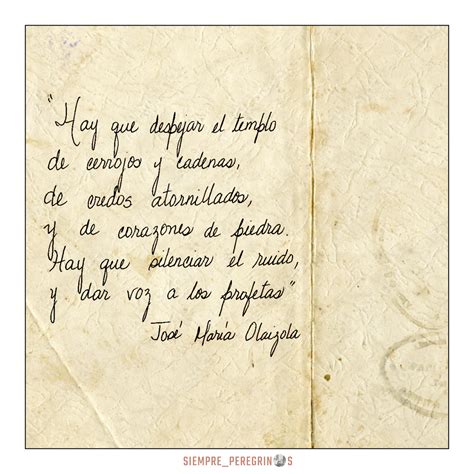 "Hay que despejar el templo
de cerrojos y cadenas,
de credos atornillados,
y de corazones de piedra.
Hay que silenciar el ruido,
y dar voz a los profetas"
José María Olaizola
SIEMPRE_PEREGRINOS